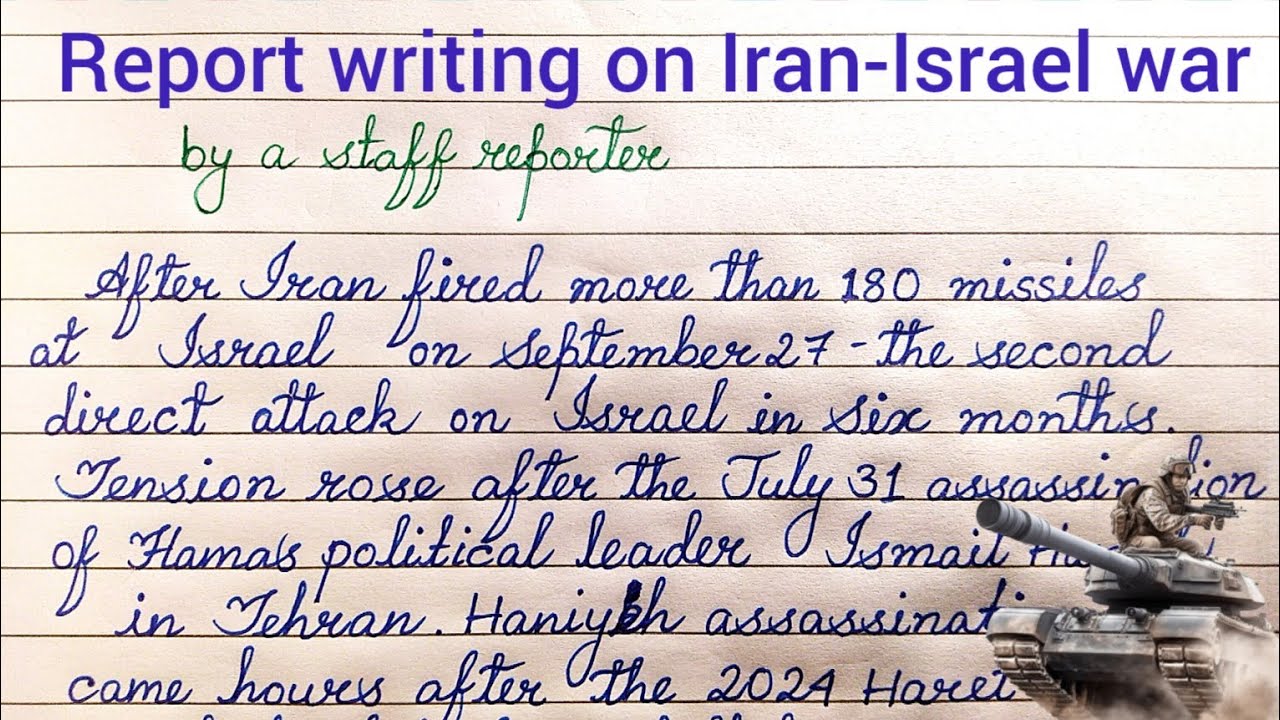 Report writing on Iran-Israel war
by a staff reporter
After Iran fired more than 180 missiles
at Israel on September 27 - the second
direct attack on Israel in six months.
Tension rose after the July 31
of Hamas political leader Ismail
in Tehran. Haniyeh
came hours after the 2024